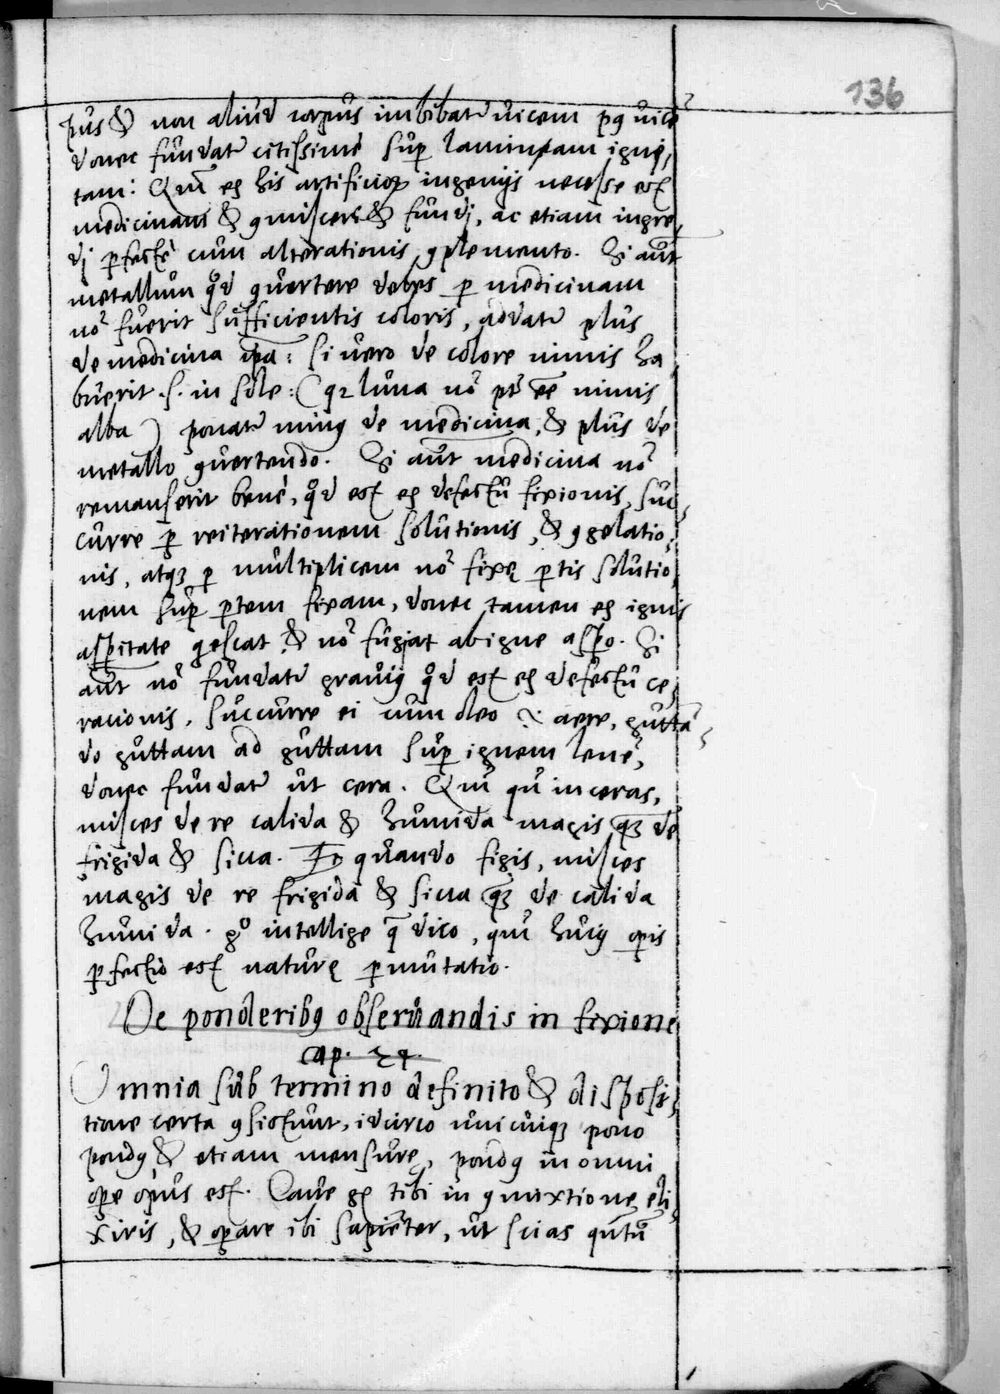 136
pus & non aliud corpus imbibatr̃ vicem pꝯ vicẽ
donec fundatr̃ citissimè sup̱ laminam igni,
tam: Quĩ ex his artificioꝝ ingenijs necesse est
medicinam & ꝯmisceri & fundj, ac etiam ingre,
dj ꝑfectè cum alterationis ꝯplemento. Si aũt
metallum qđ ꝯuertere debes ꝑ medicinam
nõ fuerit sufficientis coloris, addatr̃ plus
de medicina ip̃a: si uero de colore nimis ha
buerit .s. in sole: (qꝛ luna nõ pt̃ eẽ nimis
alba) ponatr̃ minꝯ de medicina, & plus de
metallo ꝯuertendo. Si aũt medicina nõ
remanserit benè, qđ est ex defectu fixionis, suc,
curre ꝑ reiterationem solutionis, & ꝯgelatio,
nis, atqꝫ ꝑ multiplicem nõ fixę ꝑtis solutio,
nem sup̱ ꝑtem fixam, donec tamen ex ignis
asꝑitate q̃escat & nõ fugiat ab igne asꝑo. Si
aũt nõ fundatr̃ grauiꝯ qđ est ex defectu ce,
racionis, succurre ei cum oleo & aere, guttã,
do guttam ad guttam sup̱ ignem lenẽ,
donec fundatr̃ ut cera. Quĩ qũ inceras,
misces de re calida & humida magis q̃ꝫ de
frigida & sicca. Et quando figis, misces
magis de re frigida & sicca q̃ꝫ de calida
humida. gͦ intellige q̃ dico, quĩ huiꝯ oꝑis
ꝑfectio est naturę ꝑmutatio.
De ponderibꝯ obseruandis in fixione
cap. 24.
Omnia sub termino definito & disposi,
tione certa ꝯsistunt, idcirco unicuiqꝫ pono
pondꝯ & etiam mensurę, pondꝯ in omni
oꝑe opus est. Caue gͦ tibi in ꝯmixtione eli,
xiris, & oꝑare ibi sapiẽter, ut scias qũtũ